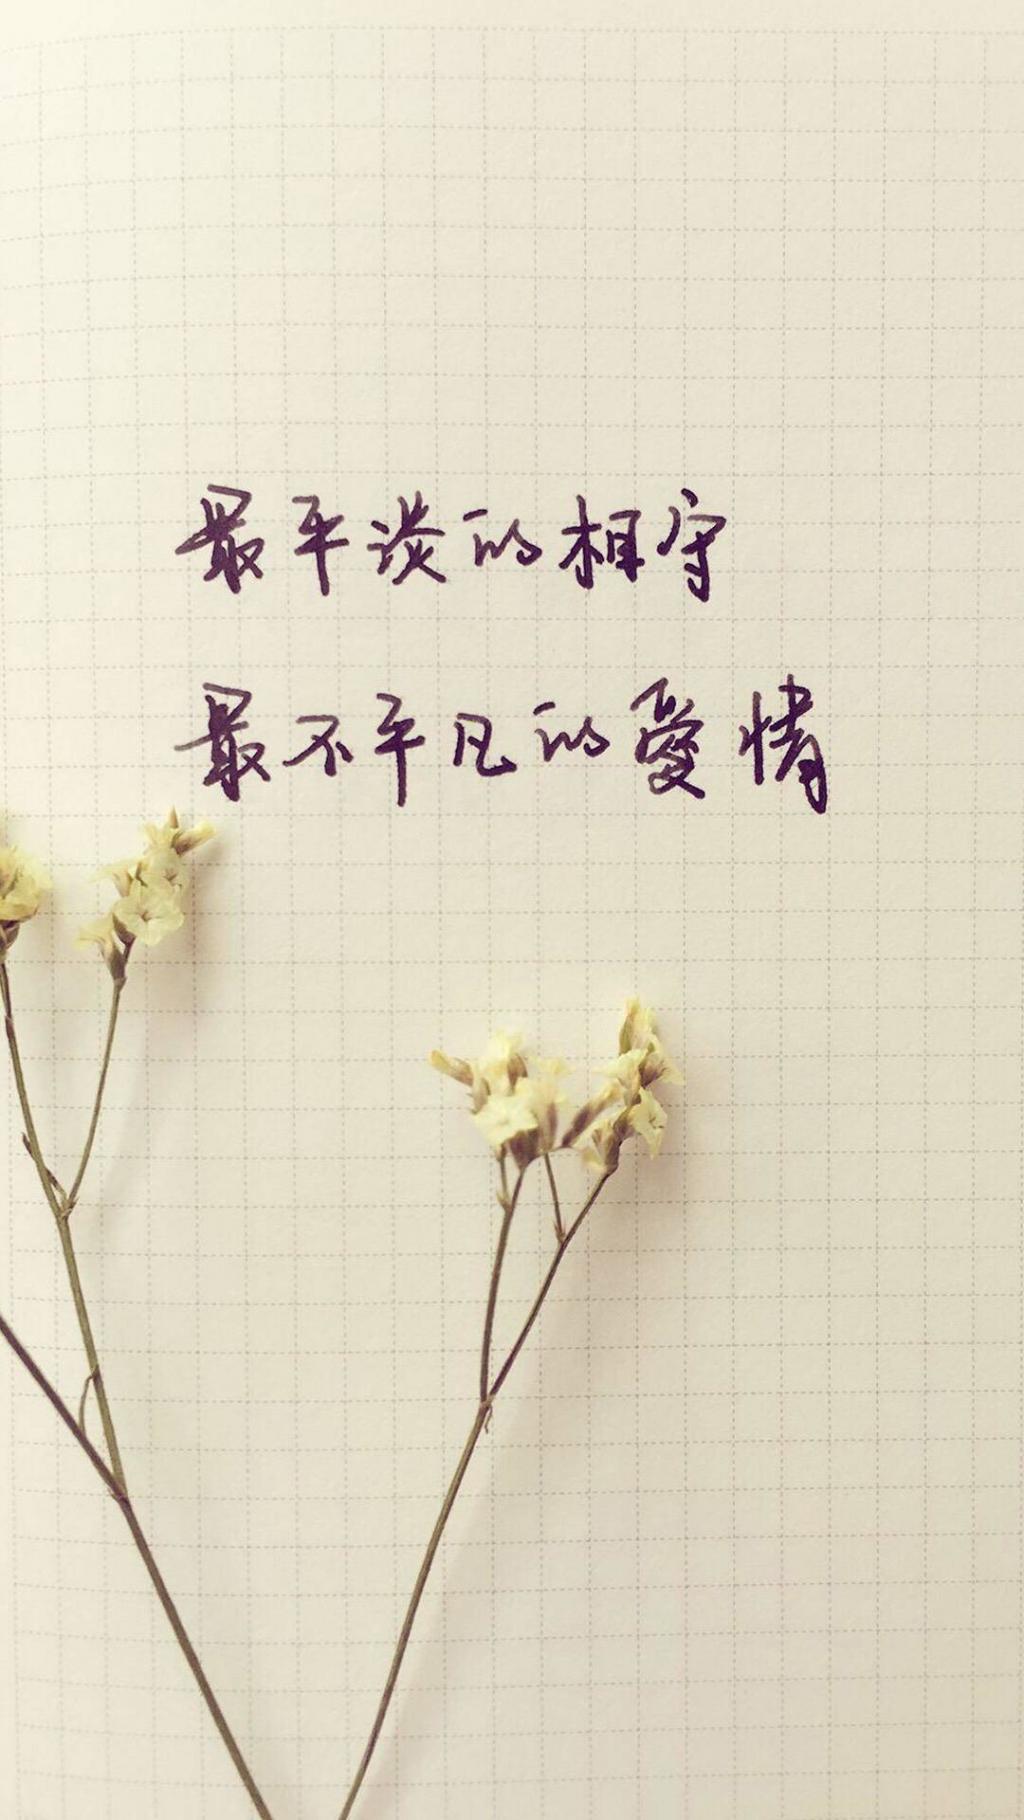 最平淡的相守
最不平凡的愛情